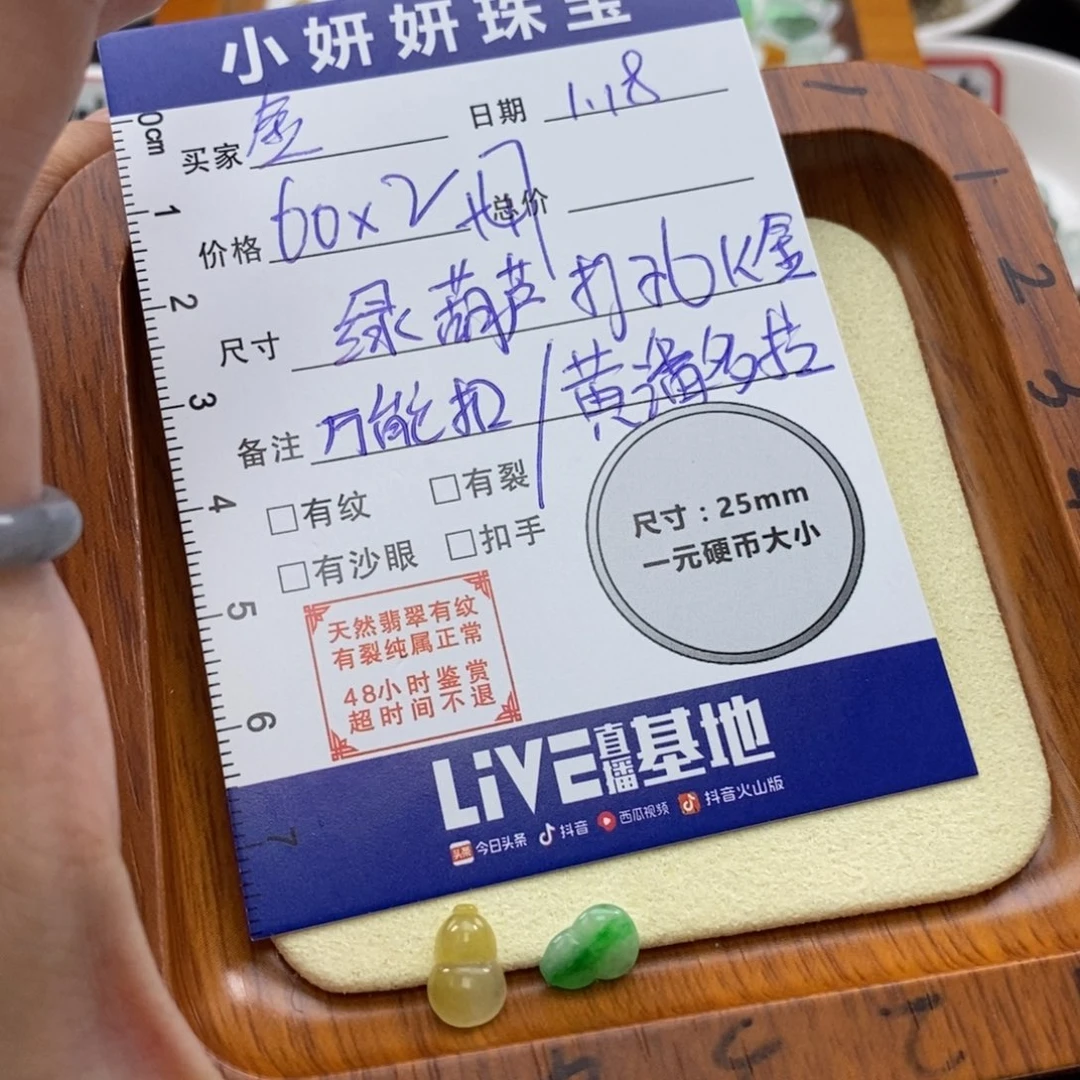 小妍妍珠宝
买家 金 日期 1.18
价格 60x2 总价
尺寸 绿葫芦打26K金
备注 万能扣/黄满多拉
□有纹 □有裂
□有沙眼 □扣手
尺寸：25mm
一元硬币大小
天然翡翠有纹
有裂纯属正常
48小时鉴赏
超时间不退
LiVE直播基地
头条 今日头条 抖音 西瓜视频 抖音火山版
0cm
1
2
3
4
5
6
7
1
2
3
4